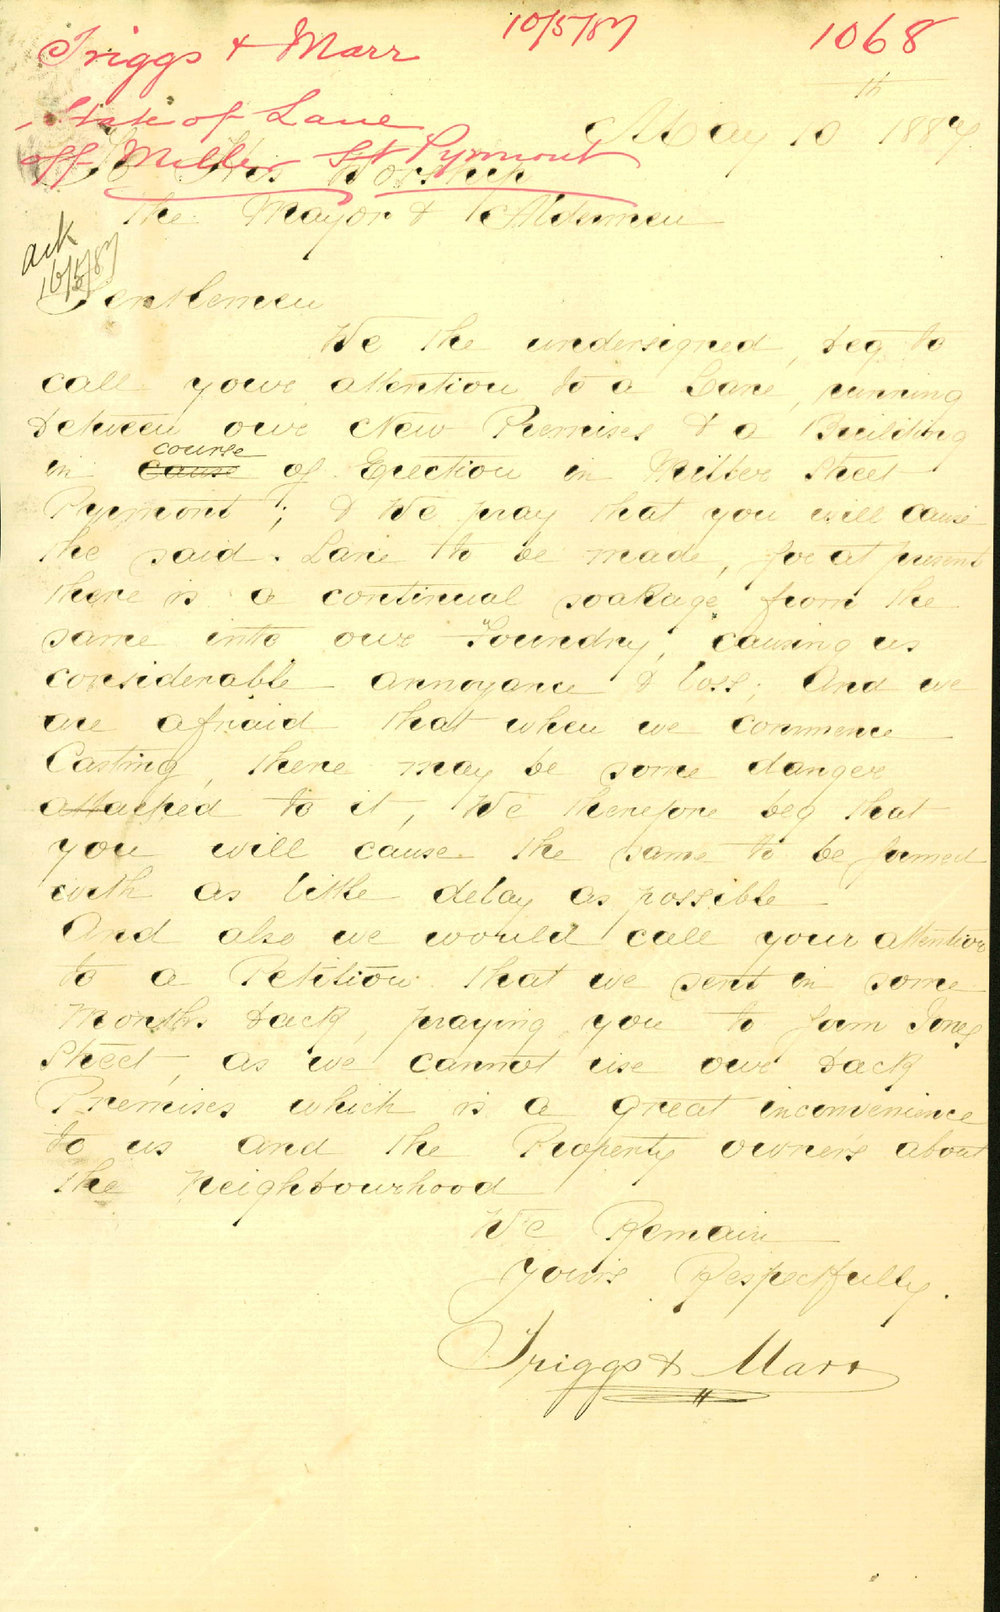 10/5/87
1068
Triggs & Marr
State of Lane
off Miller St Pyrmont
May 10th 1887
To His Worship
the Mayor & Aldermen
ack
10/5/87
Gentlemen
We the undersigned, beg to
call your attention to a Lane, running
between our New Premises & a Building
in cause course of Erection in Miller Street
Pyrmont; & We pray that you will cause
the said Lane to be made, for at present
there is a continual soakage from the
same into our "Foundry," causing us
considerable annoyance & loss; And we
are afraid that when we commence
Casting, there may be some danger
attached to it, We therefore beg that
you will cause the same to be formed
with as little delay as possible
And also we would call your attention
to a Petition that we sent in some
Months back, praying you to form Jones
Street, as we cannot use our back
Premises which is a great inconvenience
to us and the Property owners about
the Neighbourhood
We Remain
Yours Respectfully.
Triggs & Marr